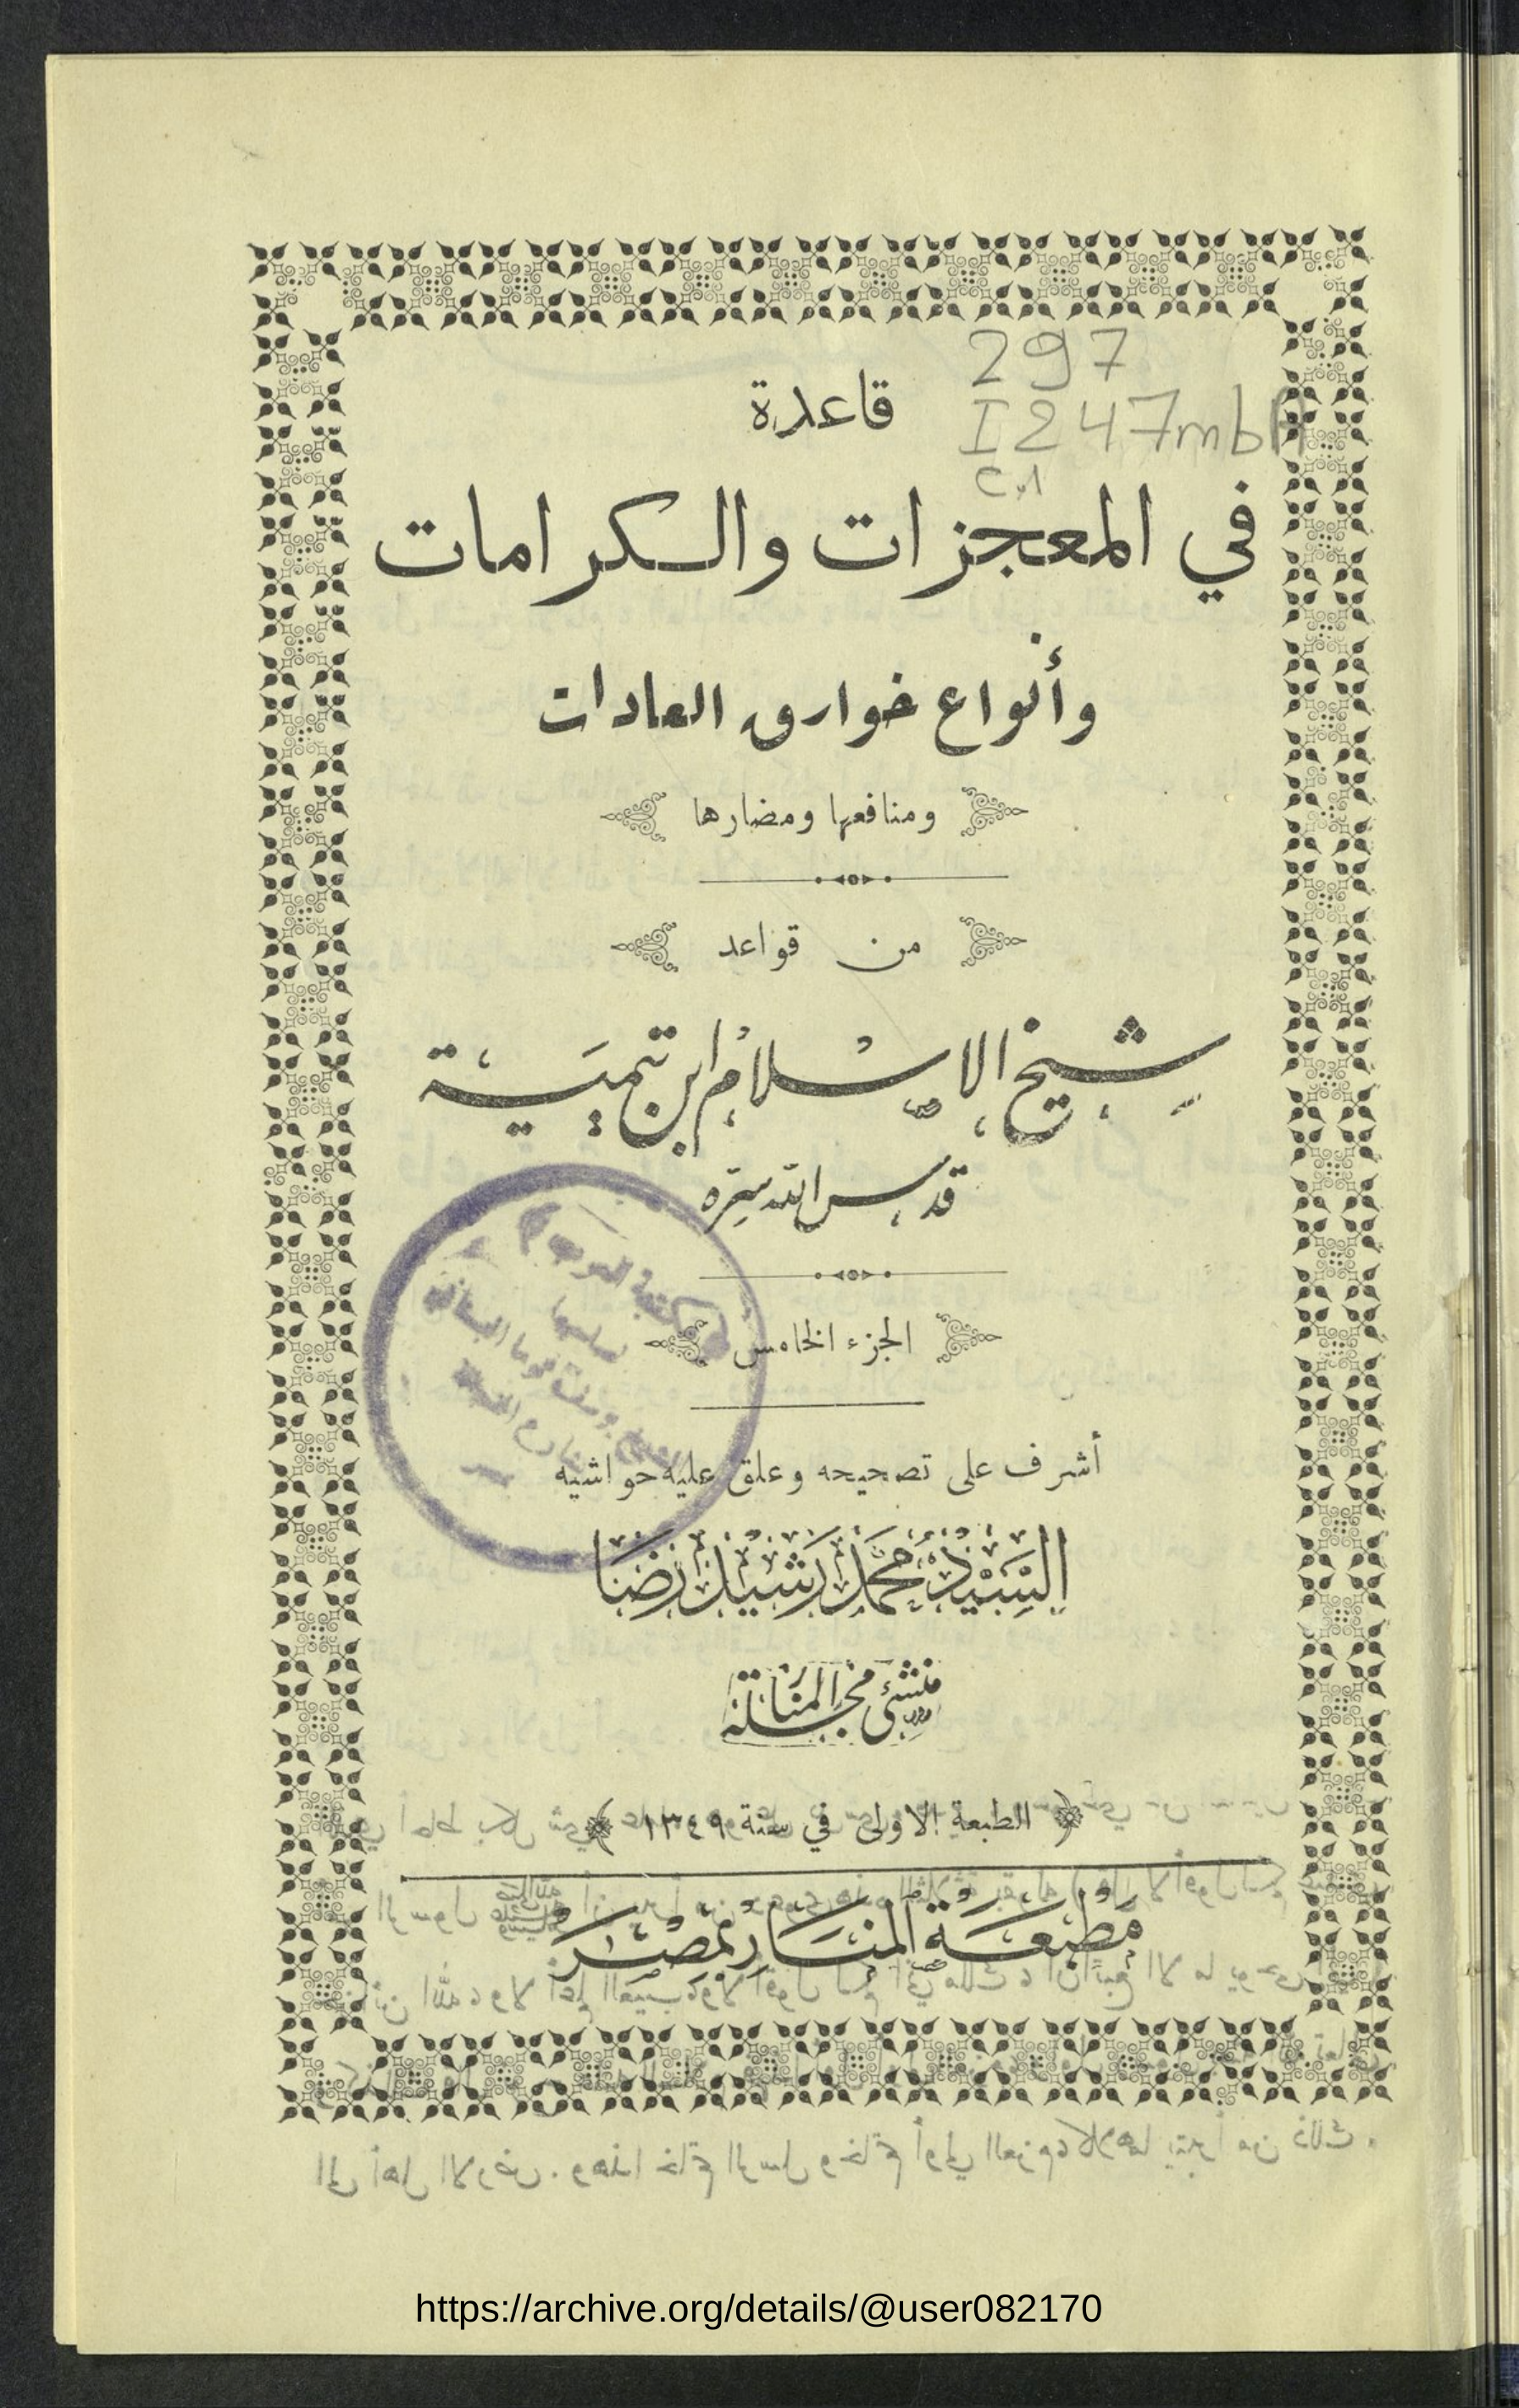 297
قاعدة
I247mbA
c.1
في المعجزات والكرامات
وأنواع خوارق العادات
ومنافعها ومضارها
من قواعد
شيخ الإسلام ابن تيمية
قدس الله سره
الجزء الخامس
أشرف على تصحيحه وعلق عليه حواشيه
السيد محمد رشيد رضا
منشئ مجلة المنار
﴿ الطبعة الاولى في سنة ١٣٤٩ ﴾
مطبعة المنار بمصر
https://archive.org/details/@user082170